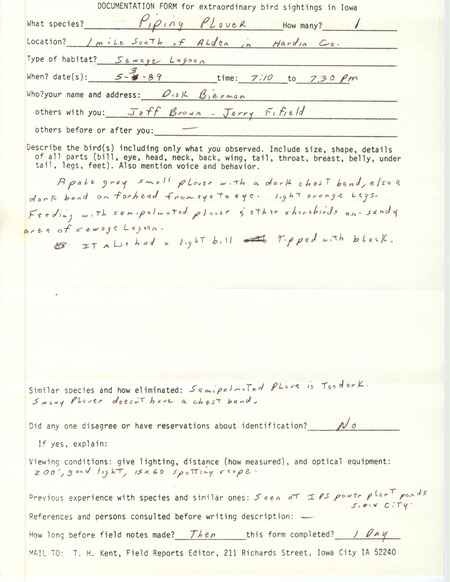 DOCUMENTATION FORM for extraordinary bird sightings in Iowa
What species? Piping Plover How many? 1
Location? 1 mile South of Alden in Hardin Co.
Type of habitat? Sewage Lagoon
When? date(s): 5-3-89 time: 7:10 to 7:30 pm
Who?your name and address: Dick Bierman
others with you: Jeff Brown - Jerry Fifield
others before or after you: —
Describe the bird(s) including only what you observed. Include size, shape, details
of all parts (bill, eye, head, neck, back, wing, tail, throat, breast, belly, under
tail, legs, feet). Also mention voice and behavior.
A pale gray small plover with a dark chest band, also a
dark band on forhead from eye to eye. light orange legs.
Feeding with semipalmated plover & other shorebirds on sandy
area of sewage Lagoon.
IT Also had a light bill tipped with black.
Similar species and how eliminated: Semipalmated Plove is Too dark.
Snowy Plover doesn't have a chest band.
Did any one disagree or have reservations about identification? No
If yes, explain:
Viewing conditions: give lighting, distance (how measured), and optical equipment:
200', good light, 15x60 spotting scope.
Previous experience with species and similar ones: Seen at IPS power plant ponds
Sioux City.
References and persons consulted before writing description: —
How long before field notes made? Then this form completed? 1 Day
MAIL TO: T. H. Kent, Field Reports Editor, 211 Richards Street, Iowa City IA 52240